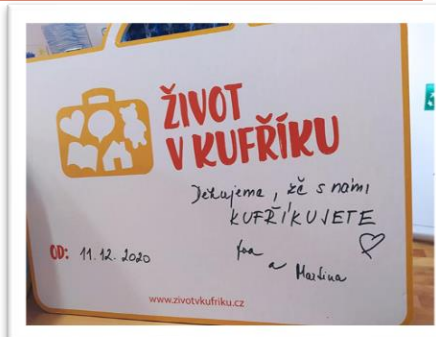 ŽIVOT
V KUFŘÍKU
Děkujeme, že s námi
KUFŘÍKUJETE
a Martina
OD: 11.12.2020
www.zivotvkufriku.cz